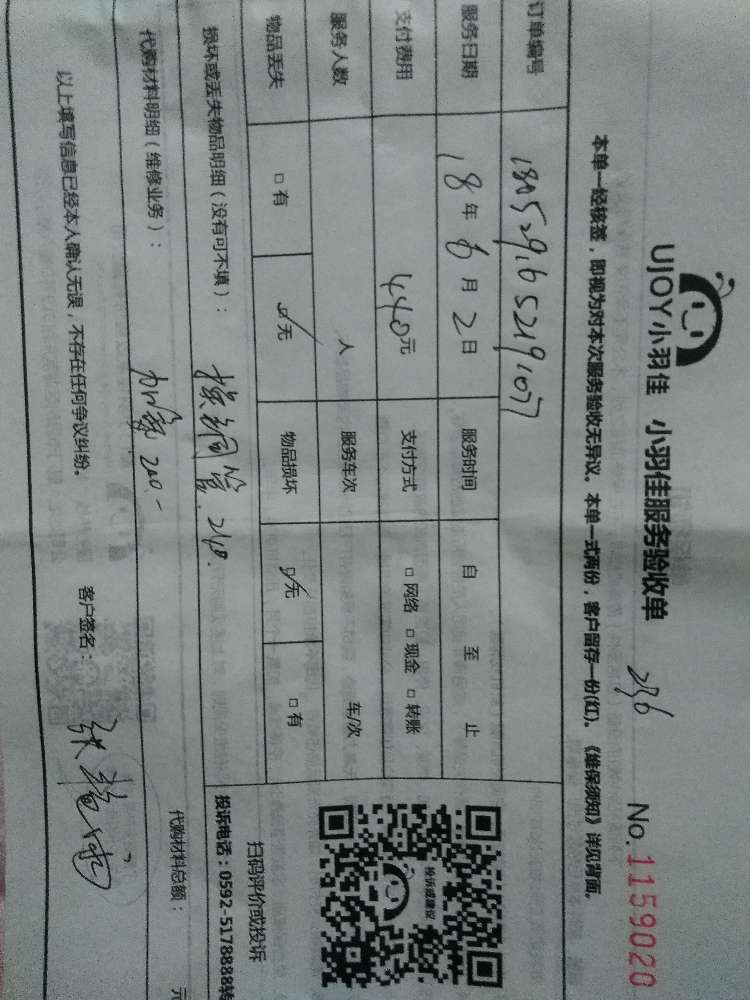 UJOY小羽佳 小羽佳服务验收单 236 No.1159020
本单一经核签，即视为对本次服务验收无异议。本单一式两份，客户留存一份(红)。《维保须知》详见背面。
订单编号
服务日期 18年6月2日 服务时间 自 至 止
支付费用 440元 支付方式 □网络 □现金 □转账
服务人数 人 服务车次 车/次
物品丢失 □有 ☑无 物品损坏 ☑无 □有
投诉或建议
扫码评价或投诉
投诉电话：0592-5178888转
损坏或丢失物品明细（没有可不填）： 换铜管 240.
代购材料明细（维修业务）： 200.- 代购材料总额： 元
以上填写信息已经本人确认无误，不存在任何争议纠纷。 客户签名：